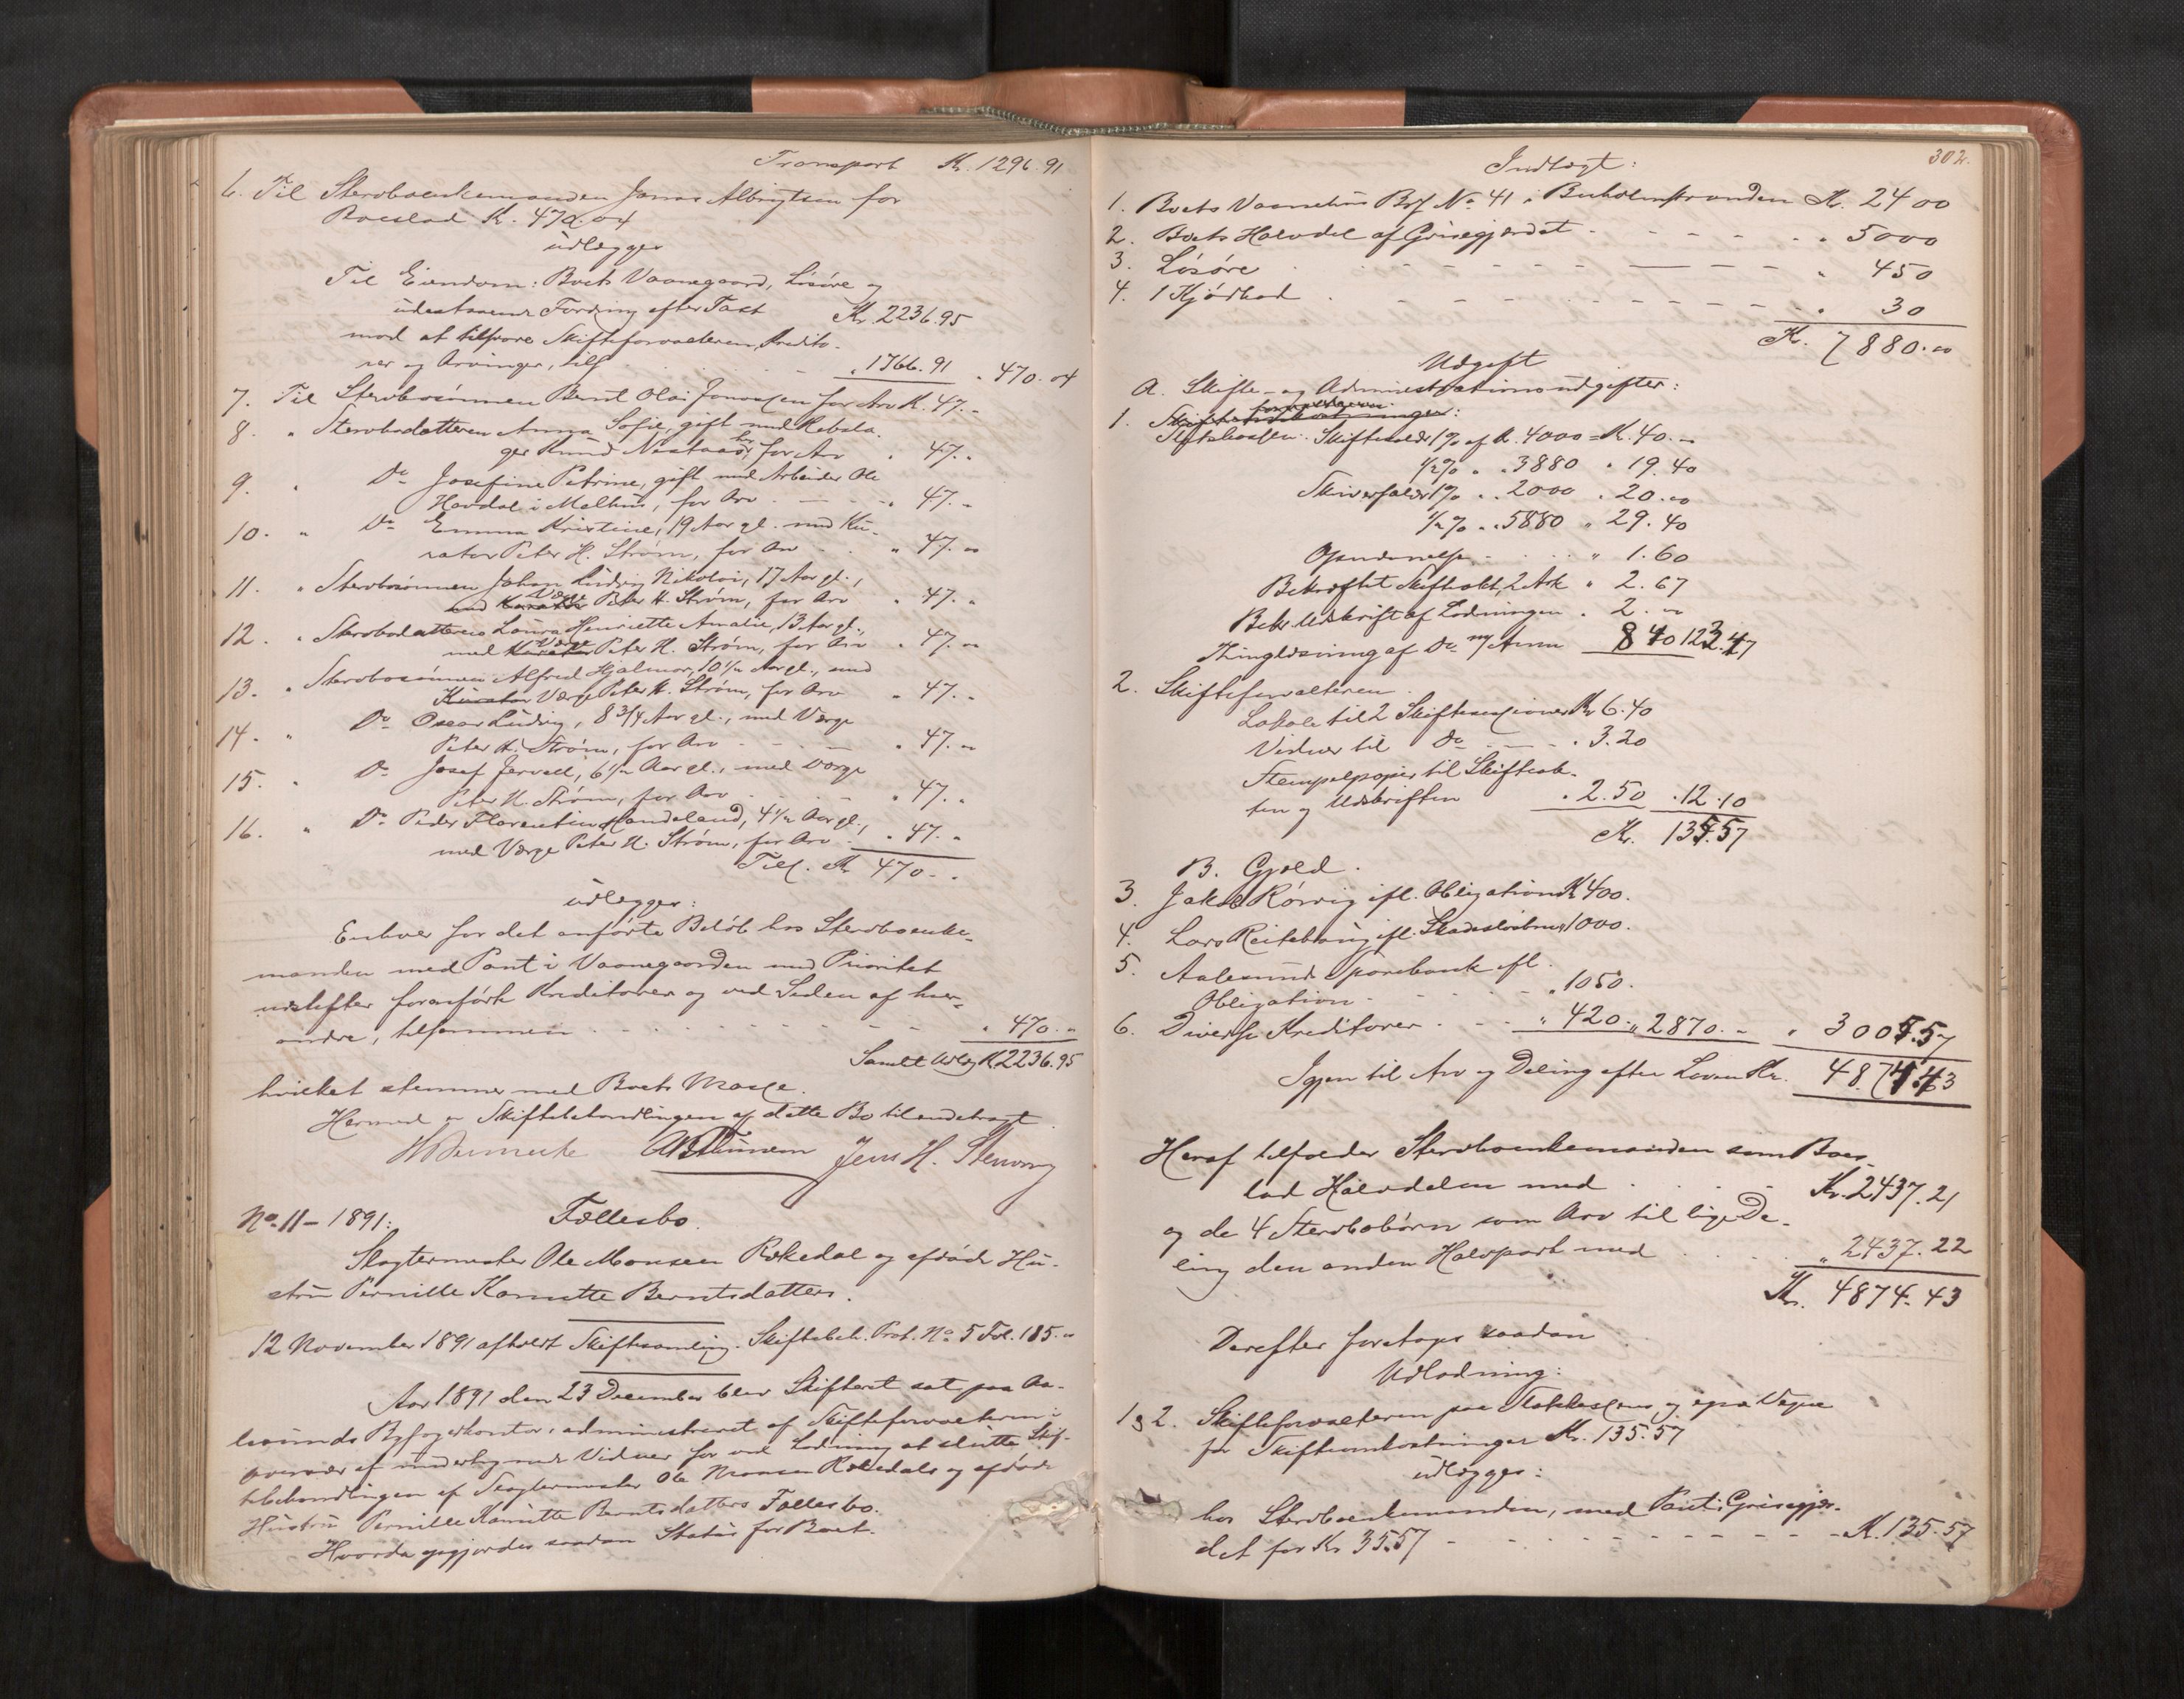 Transport Kr. 1296.91
6. Til Sterboenkemanden Jonas Albrigtsen for
Boeslod K. 470.04
udlægges
Til Eiendom: Boets Vaanegaard, Løsøre og
udestaaende Fordring efter Taxt Kr. 2236.95
mod at tilsvare Skifteforvalteren, Kredito-
rer og Arvinger, tils. " 1766.91 " 470.04
7. Til Sterbosønnen Bernt Olai Jonassen for Arv K. 47.-
8. " Sterbodatteren Anna Sofie, gift med
ger Knud for Arv " 47."
9. " Do Josefine Petrine, gift med Arbeider Ole
Havdal i Molhus, for Arv " 47.-
10. " Do Emma Kristine, 19 Aar gl. med Ku-
rator Peter H. Strøm, for Arv " 47.-
11. " Sterbosønnen Johan Ludvig Nikolai, 17 Aar gl.,
med Værge Peter H. Strøm, for Arv " 47."
12. " Sterbodatteren Laura Henriette Amalie, 13 Aar gl.,
med Værge Peter H. Strøm, for Arv " 47.-
13. " Sterbosønnen Alfred Hjalmar, 10½ Aar gl., med
Kurator Værge Peter H. Strøm, for Arv " 47.-
14. " Do Oscar Ludvig, 8 3/4 Aar gl., med Værge
Peter H. Strøm, for Arv " 47.-
15. " Do Josef Jervell, 6½ Aar gl., med Værge
Peter H. Strøm, for Arv " 47."
16. " Do Peder Florentin Sandeland, 4½ Aar gl.,
med Værge Peter H. Strøm, for Arv " 47."
Tils. Kr 470-.
udlægges:
Enhver for det anførte Beløb hos Sterboenke-
manden med Pant i Vaanegaarden med Prioritet
næstefter foranførte Kreditorer og ved Siden af hver-
andre, tilsammen " 470.-
Samlet Udlæg K 2236.95
hvilket stemmer med Boets Masse.
Hermed er Skiftebehandlingen af dette Bo tilendebragt.
Jens H. Stenvaag
No 11 - 1891: Fællesbo.
Slagtermester Ole Monsen Rekedal og afdøde Hu-
stru Pernille Kanutte Berntsdatters.
12 November 1891 afholdt Skiftesamling. Skiftebeh. Prot. No 5 Fol. 185."
Aar 1891 den 23 December blev Skifteret sat paa Aa-
lesunds Byfogedkontor, administreret af Skifteforvalteren i
Overvær af undertegnede Vidner for ved Lodning at slutte Skif-
tebehandlingen af Slagtermester Ole Monsen Rekedals og afdøde
Hustru Pernille Kanutte Berntsdatters Fællesbo.
Hvorda opgjordes saadan Status for Boet.
302.
Indtægt:
1. Boets Vaanehus Brf No 41 i Buholmstranden Kr. 2400
2. Boets Halvdel af Grisegjerdet " 5000
3. Løsøre " 450
4. 1 Kjødbod " 30
Kr. 7880.00
Udgift
A. Skifte- og Administrationsudgifter:
1. Skifteomkostninger:
Skiftesalær 1% af K. 4000 = K. 40.-
½% " " 3880 " 19.40
Skriversalær 1% " " 2000 " 20.00
½% " " 5880 " 29.40
" 1.60
Bekræftet Skifteakt, 2 Ark " 2.67
Bekr. Udskrift af Lodningen " 2.00
Thinglæsning af Do m/ Ann 8 40 123.47
2. Skifteforvalteren
Lokale til 2 Skiftesessioner Kr 6.40
Vidner til Do " 3.20
Stempelpapir til Skifteak-
ten og Udskriften " 2.50 " 12.10
Kr. 135.57
B. Gjæld.
3. Jakob Rørvig ifl. Obligation K 400.
4. Lars Reitebaug ifl. Skadesløsbrev 1000.
5. Aalesunds Sparebank ifl.
Obligation " 1050.
6. Diverse Kreditorer " 420." " 2870.- " 3005.57
Igjen til Arv og Deling efter Loven Kr. 4874.43
Heraf tilfalder Sterboenkemanden som Boes-
lod Halvdelen med Kr. 2437.21
og de 4 Sterbobørn som Arv til lige De-
ling den anden Halvpart med " 2437.22
Kr. 4874.43
Derefter foretoges saadan
Udlodning:
1 og 2. Skifteforvalteren paa Statskassens og egne Vegne
for Skifteomkostninger Kr. 135.57
udlægges:
hos Sterboenkemanden, med Pant i Grisegjer-
det for Kr 35.57 K. 135.57